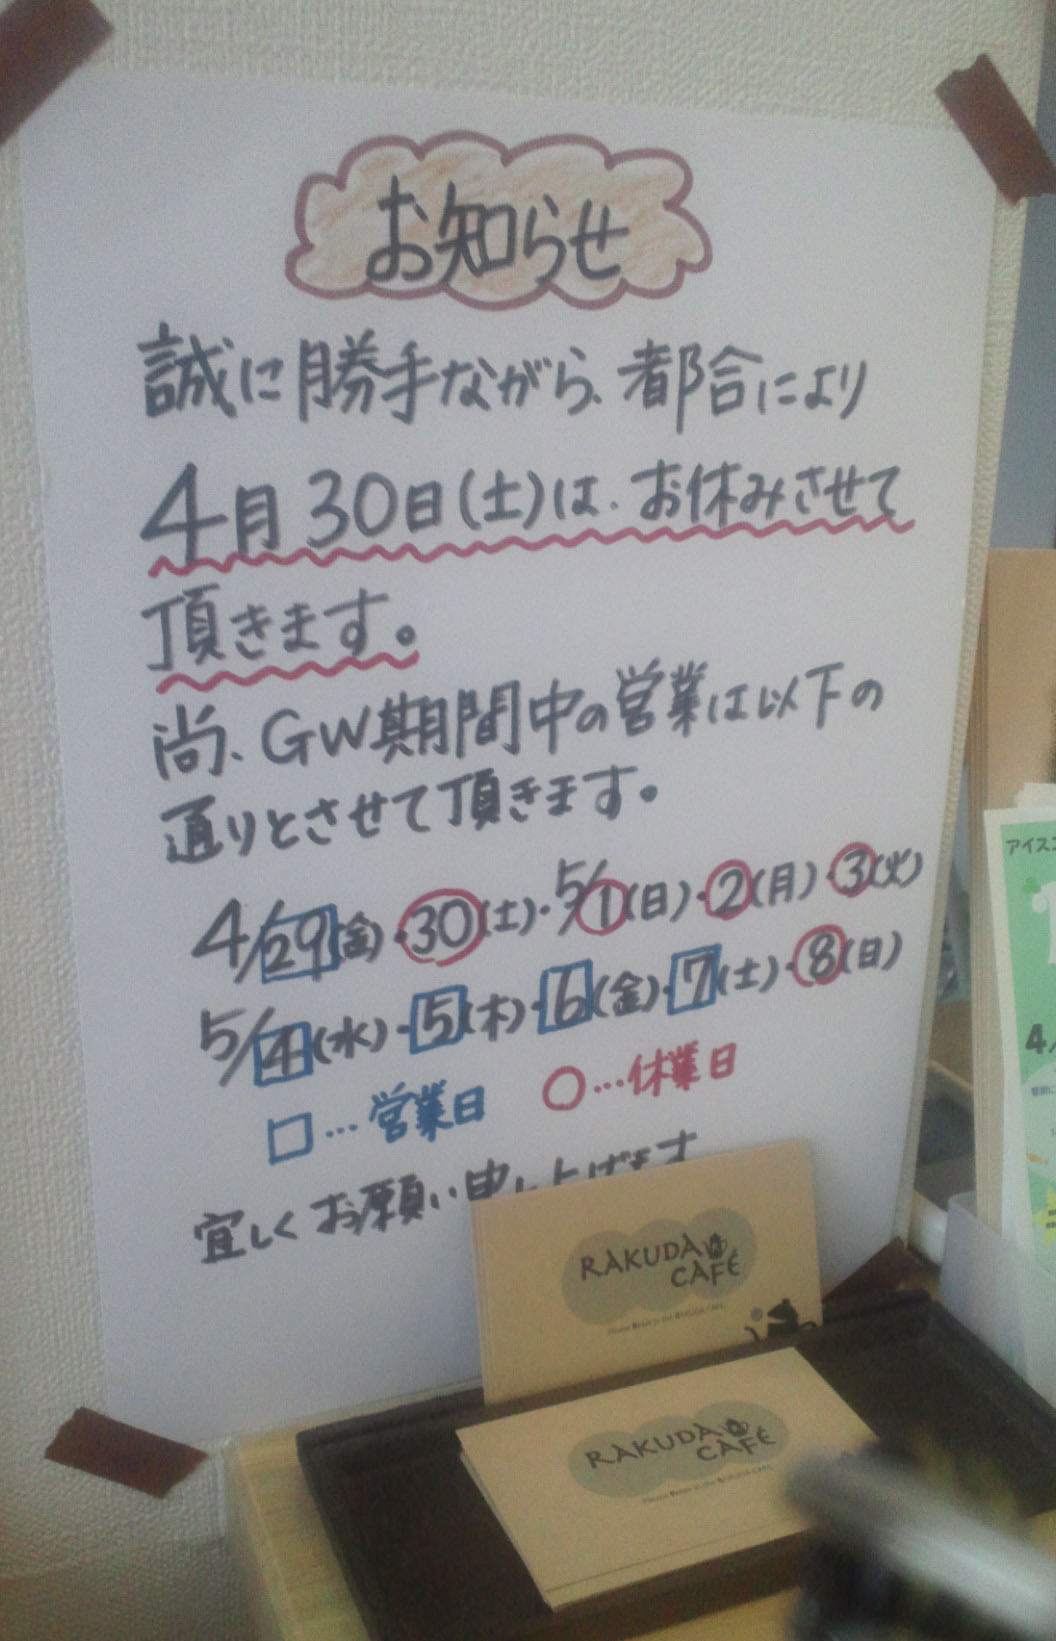 お知らせ
誠に勝手ながら、都合により
4月30日(土)は、お休みさせて
頂きます。
尚、GW期間中の営業は以下の
通りとさせて頂きます。
4/29(金)・30(土)・5/1(日)・2(月)・3(火)
5/4(水)・5(木)・6(金)・7(土)・8(日)
□…営業日 ○…休業日
宜しくお願い申し上げます
RAKUDA
CAFÉ
RAKUDA
CAFÉ
アイスコ
4/